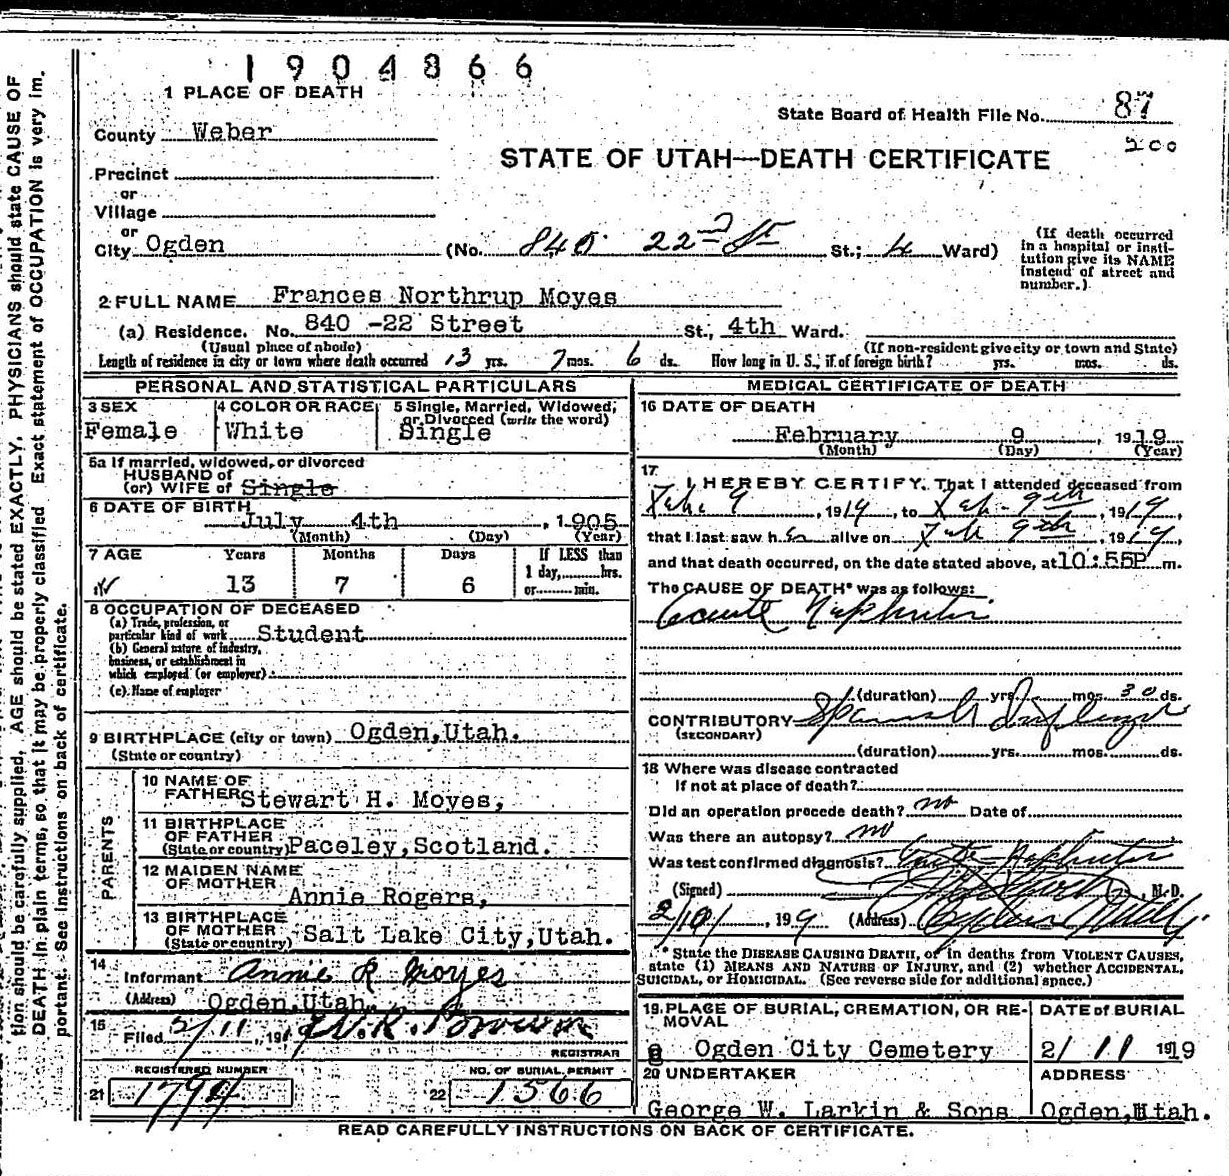 1904866
1 PLACE OF DEATH
State Board of Health File No. 87
200
County Weber
STATE OF UTAH—DEATH CERTIFICATE
Precinct
or
Village
or
City Ogden (No. 840 22nd St St.; 4 Ward)
(If death occurred
in a hospital or insti-
tution give its NAME
instead of street and
number.)
2 FULL NAME Frances Northrup Moyes
(a) Residence. No. 840 -22 Street St., 4th Ward.
(Usual place of abode) (If non-resident give city or town and State)
Length of residence in city or town where death occurred 13 yrs. 7 mos. 6 ds. How long in U. S., if of foreign birth? yrs. mos. ds.
PERSONAL AND STATISTICAL PARTICULARS
3 SEX
Female
4 COLOR OR RACE
White
5 Single, Married, Widowed,
or Divorced (write the word)
Single
5a If married, widowed, or divorced
HUSBAND of
(or) WIFE of Single
6 DATE OF BIRTH
July 4th, 1905
(Month) (Day) (Year)
7 AGE Years Months Days If LESS than
1 day,........hrs.
or........min.
13 7 6
8 OCCUPATION OF DECEASED
(a) Trade, profession, or
particular kind of work Student
(b) General nature of industry,
business, or establishment in
which employed (or employer)
(c) Name of employer
9 BIRTHPLACE (city or town) Ogden,Utah.
(State or country)
PARENTS
10 NAME OF
FATHER Stewart H. Moyes,
11 BIRTHPLACE
OF FATHER
(State or country) Paceley,Scotland.
12 MAIDEN NAME
OF MOTHER
Annie Rogers,
13 BIRTHPLACE
OF MOTHER
(State or country) Salt Lake City,Utah.
14
Informant Annie R Moyes
(Address) Ogden,Utah
15
Filed 2/11, 191
REGISTRAR
REGISTERED NUMBER
21 1794
NO. OF BURIAL PERMIT
22 1566
MEDICAL CERTIFICATE OF DEATH
16 DATE OF DEATH
February 9, 1919
(Month) (Day) (Year)
17
I HEREBY CERTIFY, That I attended deceased from
Feb 9, 1919, to Feb. 9th, 1919,
that I last saw her alive on Feb 9th, 1919,
and that death occurred, on the date stated above, at 10:55P m.
The CAUSE OF DEATH* was as follows:
Acute Nephritis
(duration) yrs. mos. 30 ds.
CONTRIBUTORY Spanish Influenza
(SECONDARY)
(duration) yrs. mos. ds.
18 Where was disease contracted
If not at place of death?
Did an operation procede death? no Date of
Was there an autopsy? no
Was test confirmed diagnosis? Acute Nephritis
(Signed) , M.D.
2/10/, 199 (Address) Ogden Utah.
* State the DISEASE CAUSING DEATH, or in deaths from VIOLENT CAUSES,
state (1) MEANS AND NATURE OF INJURY, and (2) whether ACCIDENTAL,
SUICIDAL, or HOMICIDAL. (See reverse side for additional space.)
19 PLACE OF BURIAL, CREMATION, OR RE-
MOVAL
Ogden City Cemetery
DATE of BURIAL
2/ 11 1919
20 UNDERTAKER
George W. Larkin & Sons
ADDRESS
Ogden,Utah.
READ CAREFULLY INSTRUCTIONS ON BACK OF CERTIFICATE.
tion should be carefully supplied. AGE should be stated EXACTLY. PHYSICIANS should state CAUSE OF
DEATH in plain terms, so that it may be properly classified. Exact statement of OCCUPATION is very im-
portant. See instructions on back of certificate.